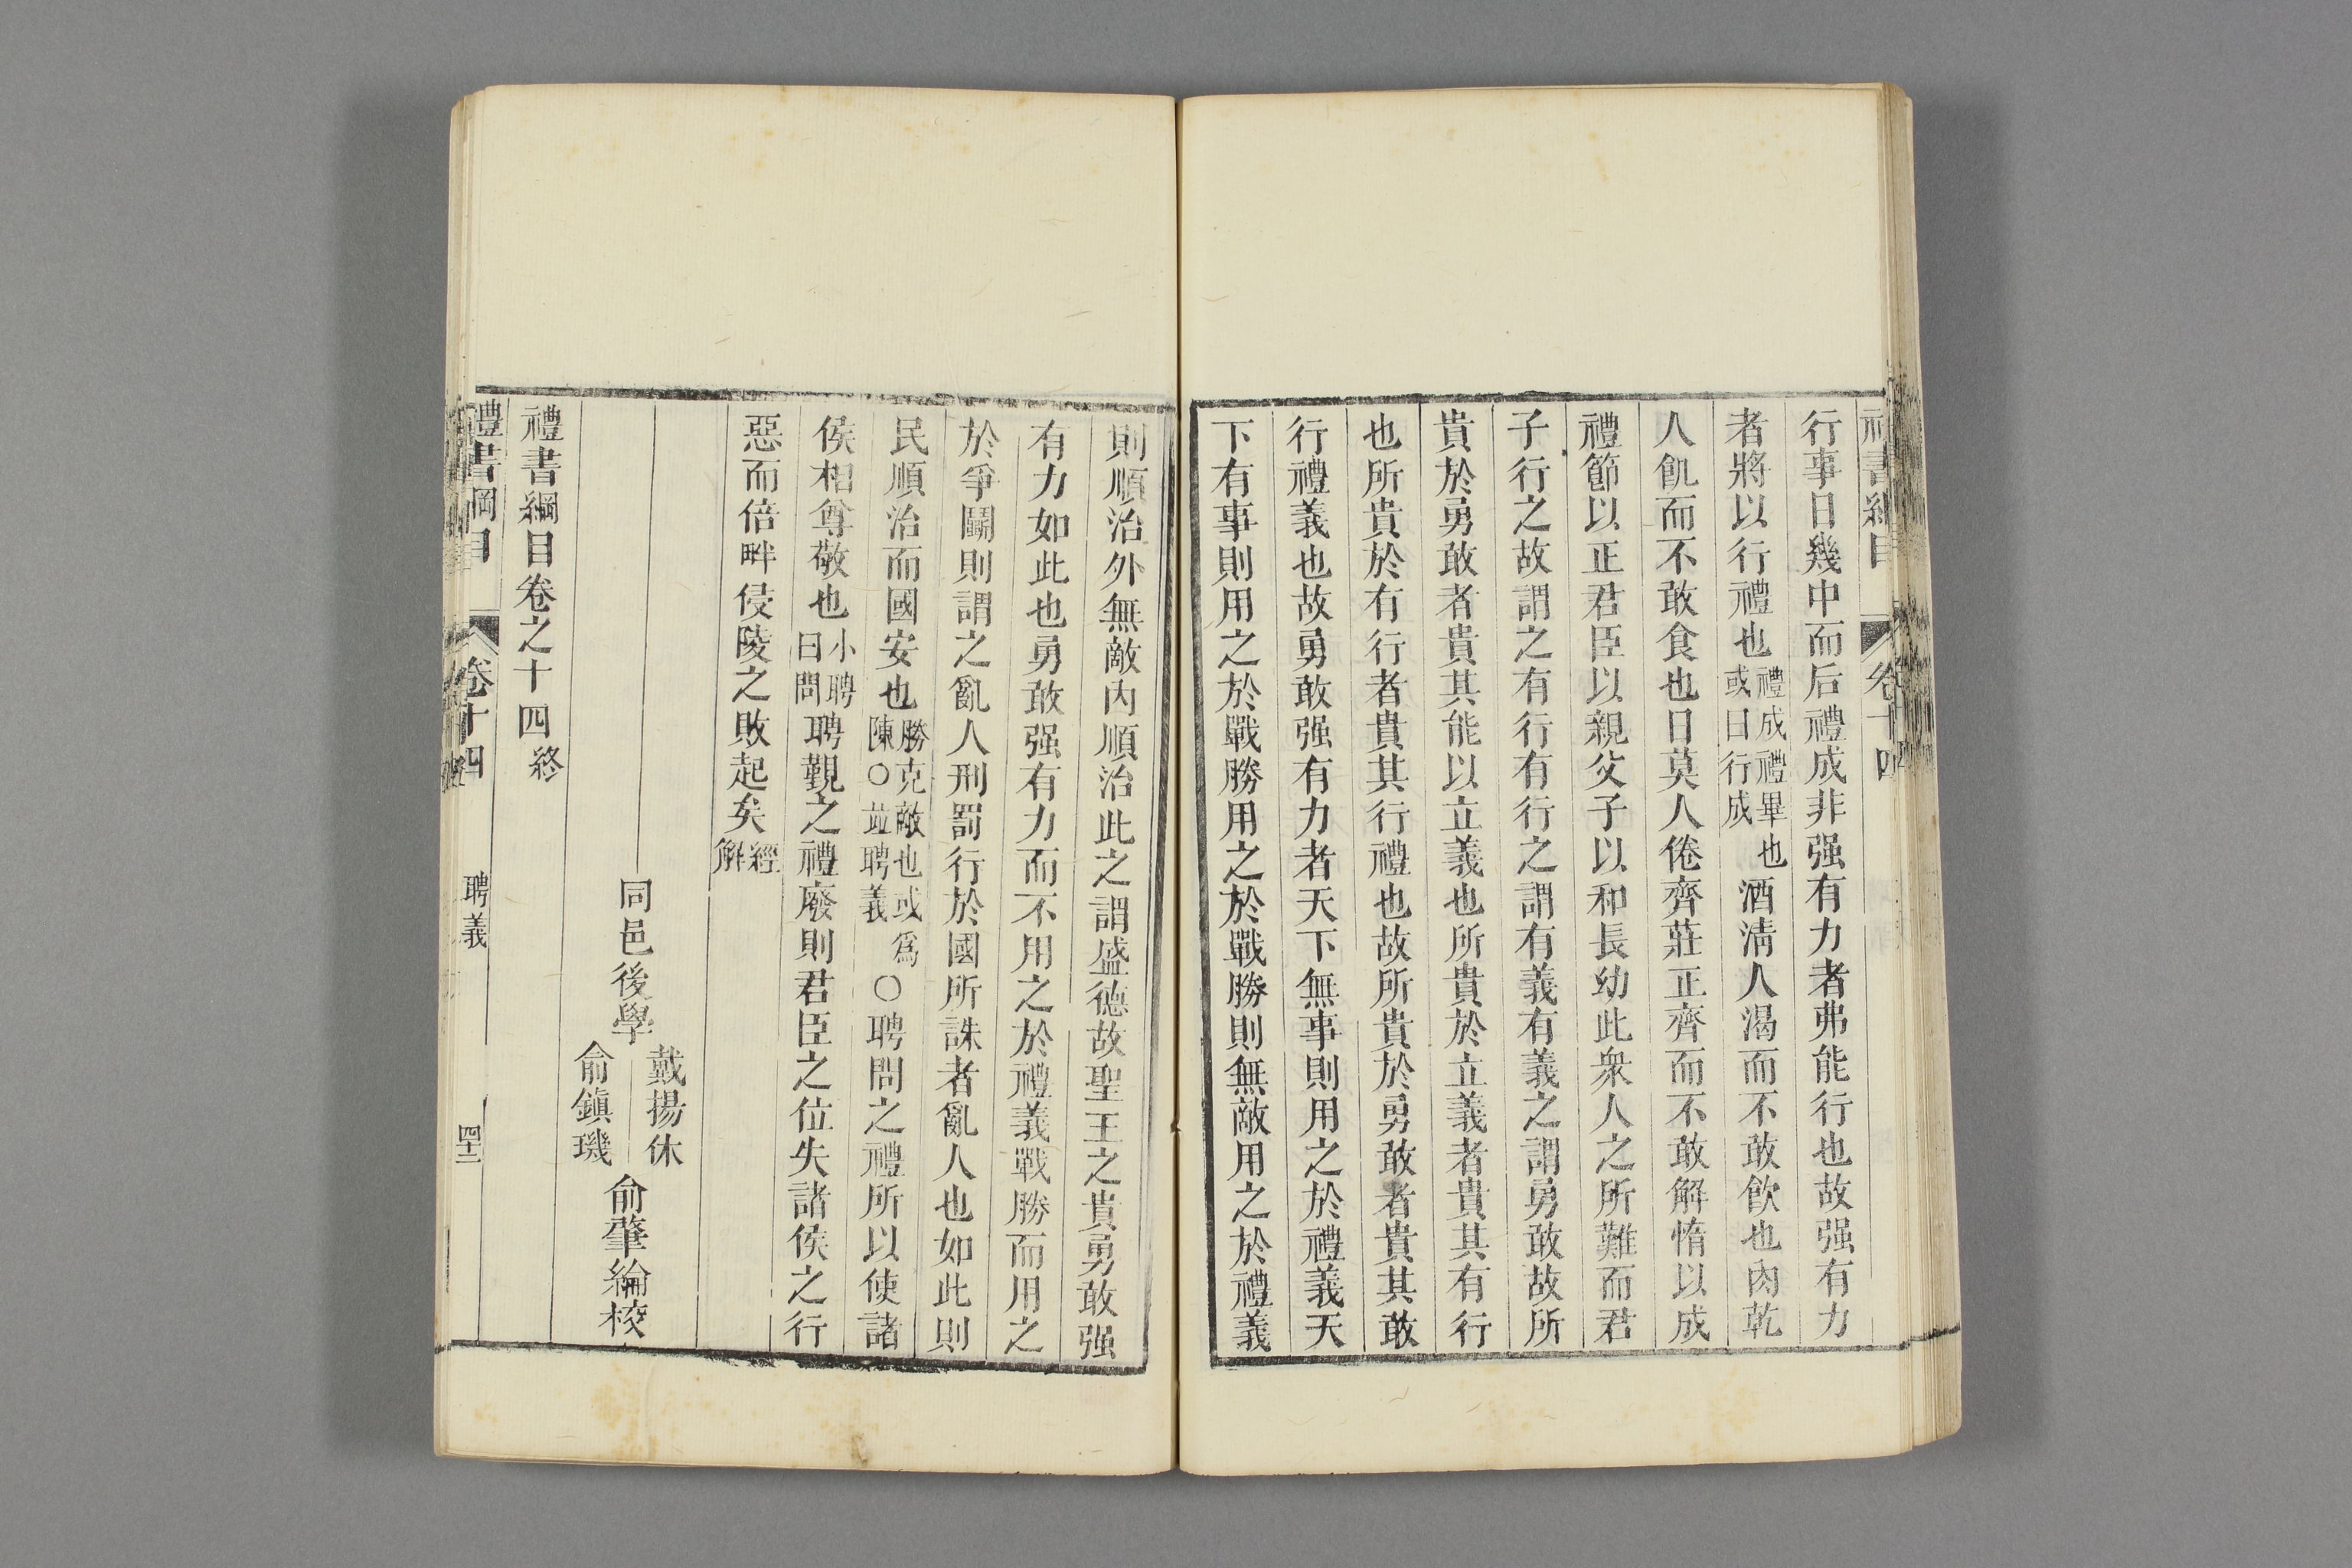 行事日幾中而后禮成非强有力者弗能行也故强有力
者將以行禮也禮成禮畢也或曰行成酒淸人渴而不敢飮也肉乾
人飢而不敢食也日莫人倦齊莊正齊而不敢解惰以成
禮節以正君臣以親父子以和長幼此衆人之所難而君
子行之故謂之有行有行之謂有義有義之謂勇敢故所
貴於勇敢者貴其能以立義也所貴於立義者貴其有行
也所貴於有行者貴其行禮也故所貴於勇敢者貴其敢
行禮義也故勇敢强有力者天下無事則用之於禮義天
下有事則用之於戰勝用之於戰勝則無敵用之於禮義
則順治外無敵內順治此之謂盛德故聖王之貴勇敢强
有力如此也勇敢强有力而不用之於禮義戰勝而用之
於爭鬭則謂之亂人刑罰行於國所誅者亂人也如此則
民順治而國安也勝克敵也或爲陳○竝聘義○聘問之禮所以使諸
侯相尊敬也小聘曰問聘覲之禮廢則君臣之位失諸侯之行
惡而倍畔侵陵之敗起矣經解
同邑後學戴揚休俞鎮璣俞肇綸校
禮書綱目卷之十四終
禮書綱目 卷十四 聘義 四十二